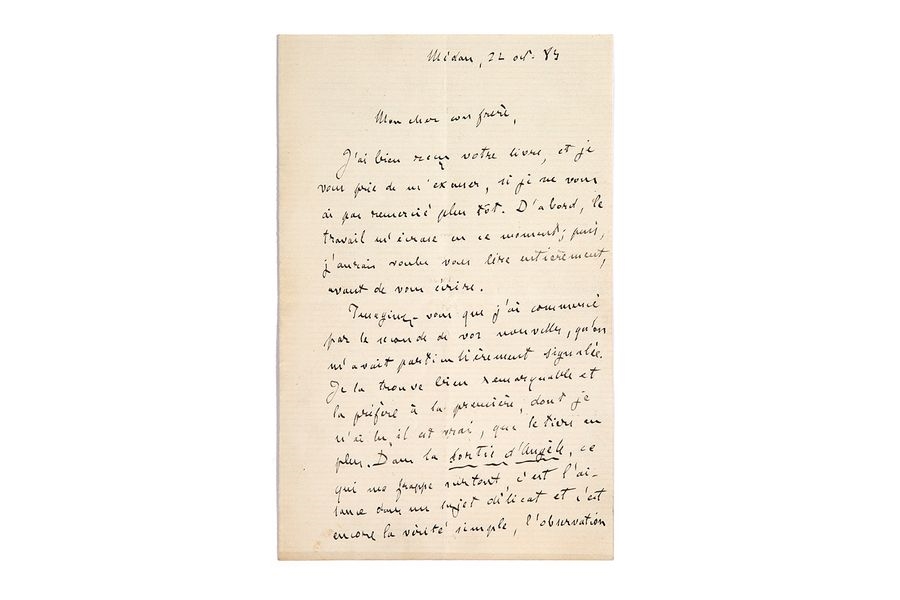 Médan, 22 oct. 84
Mon cher confrère,
J'ai bien reçu votre livre, et je
vous prie de m'excuser, si je ne vous
ai pas remercié plus tôt. D'abord, le
travail m'écrase en ce moment; puis,
j'aurais voulu vous lire entièrement,
avant de vous écrire.
Imaginez-vous que j'ai commencé
par la seconde de vos nouvelles, qu'on
m'avait particulièrement signalée.
Je la trouve bien remarquable et
la préfère à la première, dont je
n'ai lu, il est vrai, que le tiers en
plus. Dans la Sortie d'Angèle, ce
qui me frappe surtout c'est l'ai-
sance dans un sujet délicat et c'est
encore la vérité simple, l'observation